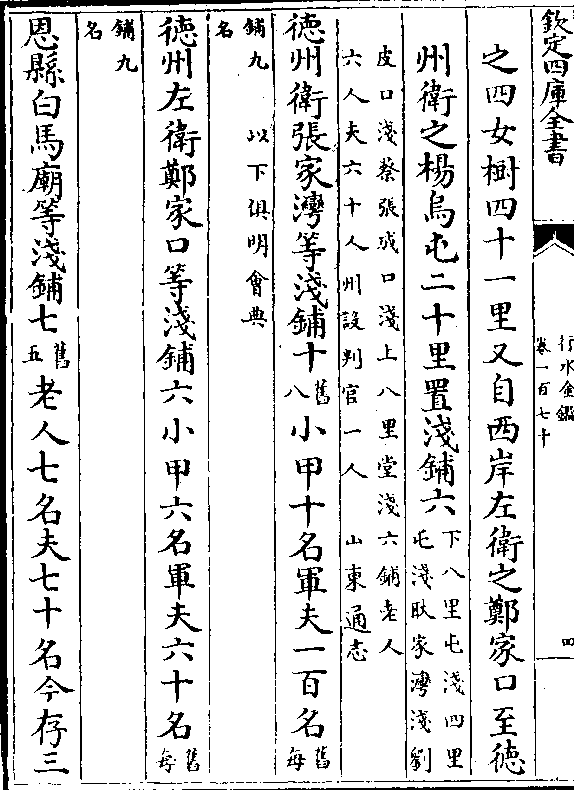 欽定四庫全書
行水金鑑
卷一百七十
四
之四女樹四十一里又自西岸左衛之鄭家口至德
州衛之楊烏屯二十里置淺鋪六下八里屯淺四里屯淺耿家灣淺劉
皮口淺蔡張成口淺上八里堂淺六鋪老人
六人夫六十人州設判官一人 山東通志
德州衛張家灣等淺鋪十舊八小甲十名軍夫一百名舊每
鋪九名 以下俱明會典
德州左衛鄭家口等淺鋪六小甲六名軍夫六十名舊每
鋪九名
恩縣白馬廟等淺鋪七舊五老人七名夫七十名今存三